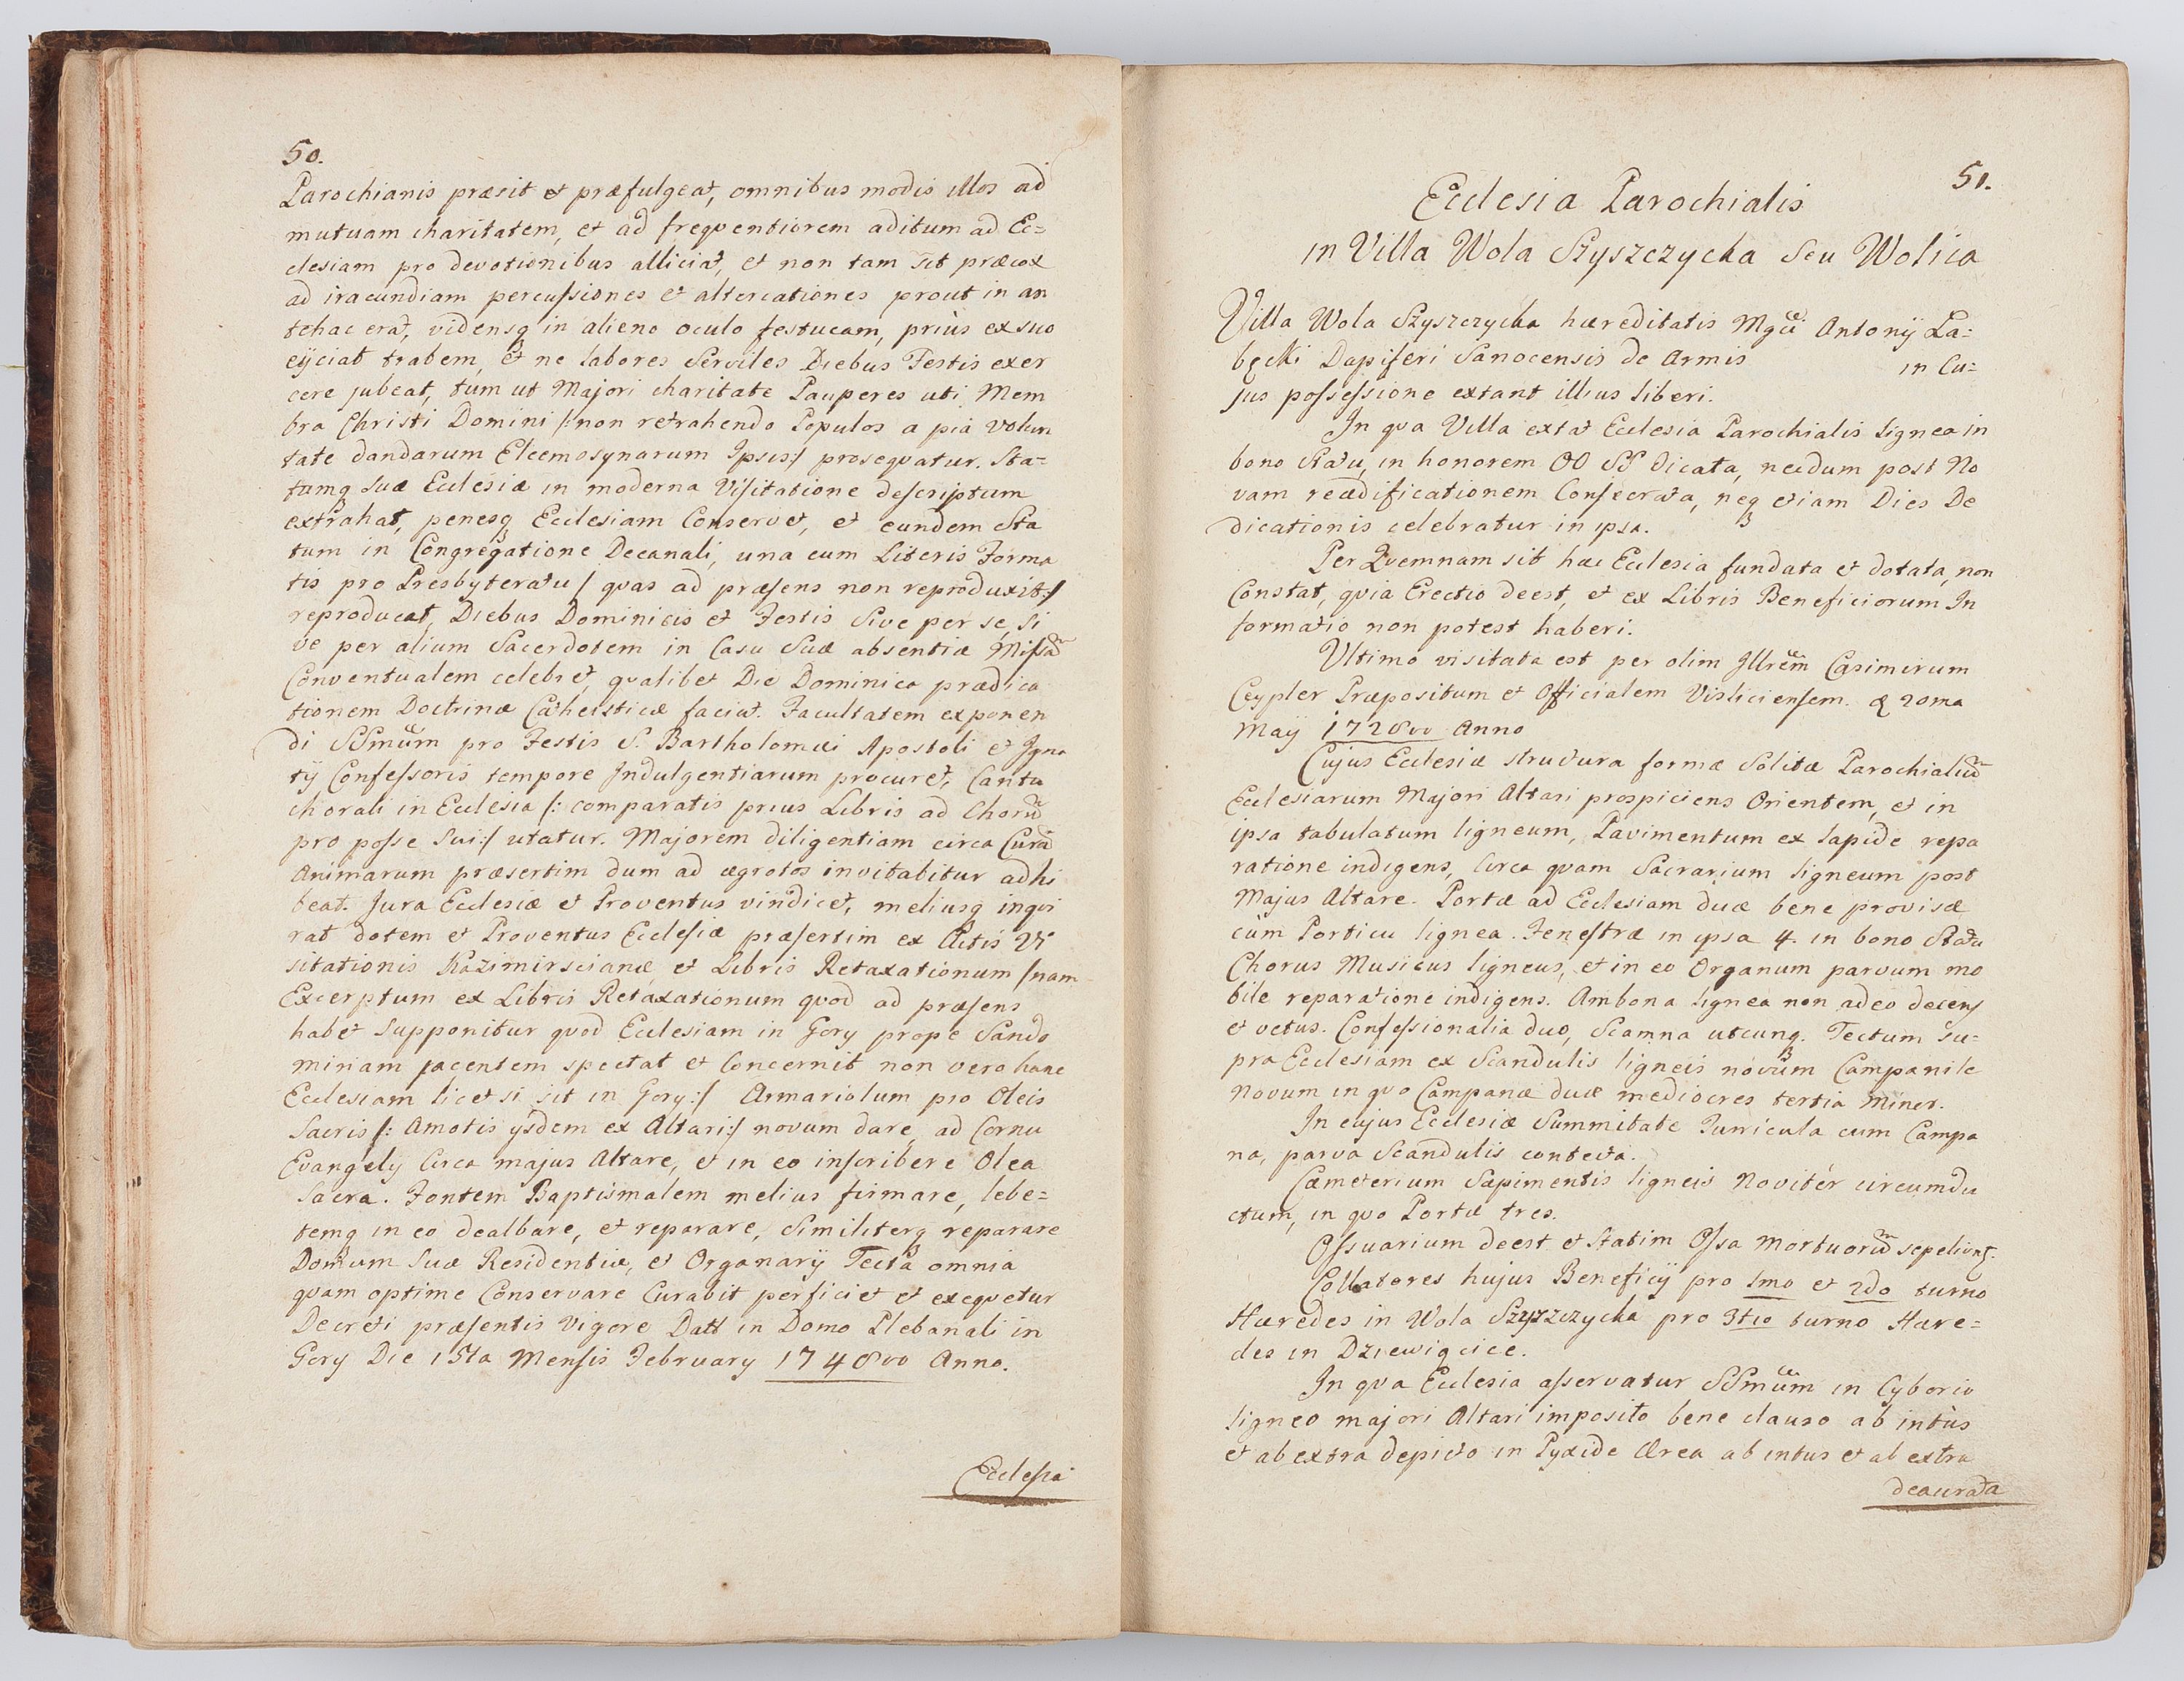 50.
Parochianis præsit et præfulgeat, omnibus modis illos ad
mutuam charitatem, et ad freqventiorem aditum ad Ec=
clesiam pro devotionibus alliciat, et non tam sit præcox
ad iracundiam percussiones et altercationes prout in an
tehac erat, vidensq in alieno oculo festucam, priùs ex suo
eijciat trabem, et ne labores Serviles Diebus Festis exer
cere jubeat, tum ut Majori charitate Pauperes uti Mem
bra Christi Domini /: non retrahendo Populos a pia volun
tate dandarum Eleemosynarum Ipsis :/ proseqvatur. Sta=
tumq suæ Ecclesiæ in moderna Visitatione descriptum
extrahat, penesq Ecclesiam Conservet, et eundem Sta
tum in Congregatione Decanali, una cum Literis Forma
tis pro Presbyteratu / qvas ad præsens non reproduxit :/
reproducat, Diebus Dominicis et Festis Sive per se, Si
ve per alium Sacerdotem in Casu Suæ absentiæ Missã
Conventualem celebret, qvalibet Die Dominica prædica
tionem Doctrinæ Catheisticæ faciat. Facultatem exponen
di SSmũm pro Festis S. Bartholomæi Apostoli et Igna
tij Confessoris tempore Indulgentiarum procuret, Cantu
chorali in Ecclesia /: comparatis prius Libris ad Chorũ
pro posse Sui :/ utatur. Majorem diligentiam circa Curã
Animarum præsertim dum ad ægrotos invitabitur adhi
beat. Jura Ecclesiæ et Proventus vindicet, meliusq inqvi
rat dotem et Proventus Ecclesiæ præsertim ex Actis Vi
sitationis Kazimirscianæ et Libris Retaxationum /nam
Excerptum ex Libris Retaxationum qvod ad præsens
habet Supponitur qvod Ecclesiam in Gory prope Sando
miriam jacentem spectat et Concernit non vero hanc
Ecclesiam licet si sit in Gory :/ Armariolum pro Oleis
Sacris /: Amotis ijsdem ex Altari :/ novum dare, ad Cornu
Evangelij Circa majus Altare, et in eo inscribere Olea
Sacra. Fontem Baptismalem melius firmare, lebe=
temq in eo dealbare, et reparare, Similiterq reparare
Domum Suæ Residentiæ, et Organarij Tecta omnia
qvam optime Conservare Curabit perficiet et exeqvetur
Decreti præsentis Vigore Datt in Domo Plebanali in
Gory Die 15ta Mensis February 1748vo Anno.
Ecclesia
51.
Ecclesia Parochialis
in Villa Wola Szyszczycka Seu Wolica
Villa Wola Szyszczycka hæreditatis Mgci Antonij Ła=
bęcki Dapiferi Sanocensis de Armis in Cu=
jus possessione extant illius liberi.
In qva Villa extat Ecclesia Parochialis Lignea in
bono Statu, in honorem OO SS dicata, necdum post No
vam reædificationem Consecrata, neq etiam Dies De
dicationis celebratur in ipsa.
Per Qvemnam sit hæc Ecclesia fundata et dotata, non
Constat, qvia Erectio deest, et ex Libris Beneficiorum In
formatio non potest haberi.
Ultimo visitata est per olim Illrẽm Casimirum
Ceypler Præpositum et Officialem Visliciensem. 20ma
Maij 1728vo Anno
Cujus Ecclesiæ structura formæ Solitæ Parochialiũ
Ecclesiarum Majori Altari prospiciens Orientem, et in
ipsa tabulatum ligneum, Pavimentum ex lapide repa
ratione indigens, Circa qvam Sacrarium ligneum post
Majus Altare. Portæ ad Ecclesiam duæ bene provisæ
cùm Porticu lignea. Fenestræ in ipsa 4. in bono Statu
Chorus Musicus ligneus, et in eo Organum parvum mo
bile reparatione indigens. Ambona lignea non adeo decens
et vetus. Confessionalia duo, Scamna utcunq. Tectum su=
pra Ecclesiam ex Scandulis ligneis nòvum Campanile
Novum in qvo Campanæ duæ mediocres tertia Minor.
In cujus Ecclesiæ Summitate Turricula cum Campa
na, parva Scandulis contecta.
Cæmeterium Sæpimentis ligneis Novitèr circumdu
ctum, in qvo Portæ tres.
Ossuarium deest et Statim Ossa Mortuorũ sepeliunt.
Collatores hujus Beneficij pro 1mo et 2do turno
Hæredes in Wola Szyszczycka pro 3tio turno Hære=
des in Dziewięcice.
In qva Ecclesia asservatur SSmũm in Cyborio
ligneo majori Altari imposito bene clauso ab intùs
et ab extra depicto in Pyxide Ærea ab intus et ab extra
deaurata